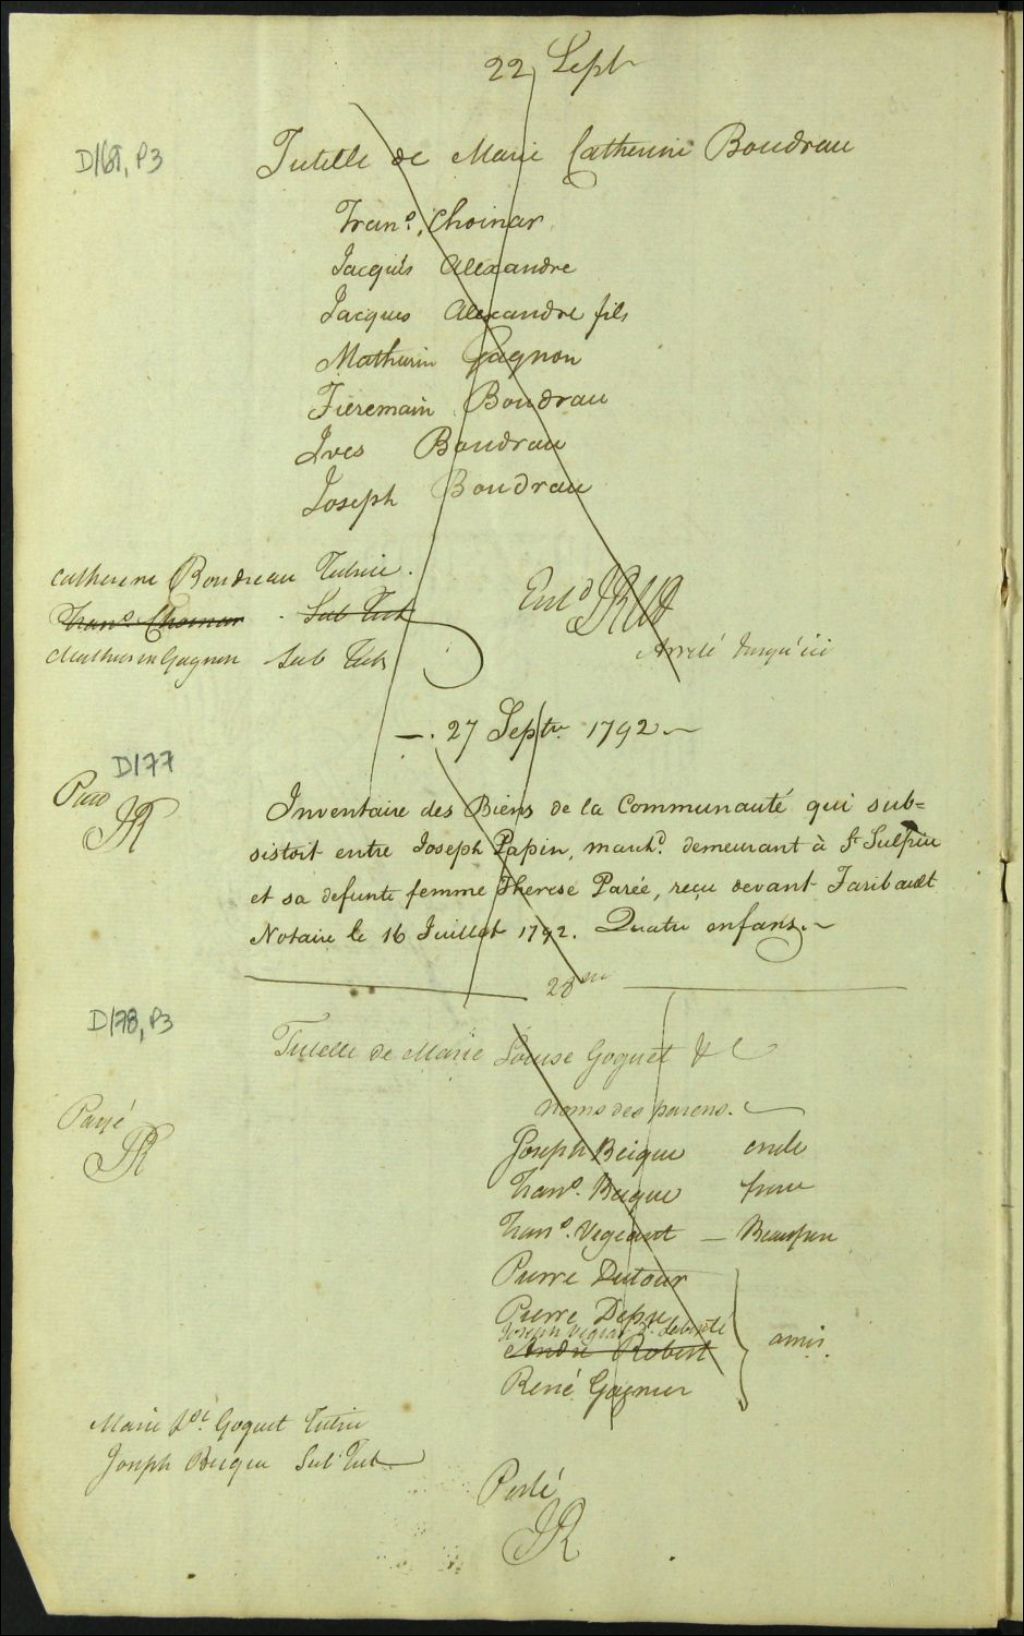 22 Sept
D161, P3
Tutelle de Marie Catherine Boudrau
Fran.s Choinar
Jacques Alexandre
Jacques Alexandre fils
Mathurin Gagnon
Fieremain Boudrau
Ives Boudrau
Joseph Boudrau
Catherine Boudreau Tutrice.
Fran.s Choinar Sub Tut
Mathurin Gagnon Sub Tut
Ent.d
Arrêté Jusqu'ici
27 Septr. 1792
D177
JR
Inventaire des Biens de la Communauté qui sub=
sistoit entre Joseph Papin, march.d demeurant à St Sulpice
et sa defunte femme Therese Parée, reçu devant Faribault
Notaire le 16 Juillet 1792. Quatre enfans.
28
D178, P3
Tutelle de Marie Louise Goguet &c
Noms des parens.
Payé
JR
Joseph Beique oncle
Fran.s Beique
Fran.s Vegeant — Beaufrere
Pierre Dutour
Pierre
Joseph
André Robert
René Gagnier
amis
Marie Goguet Tutrice
Joseph Beique Sub Tut
Porté
JR